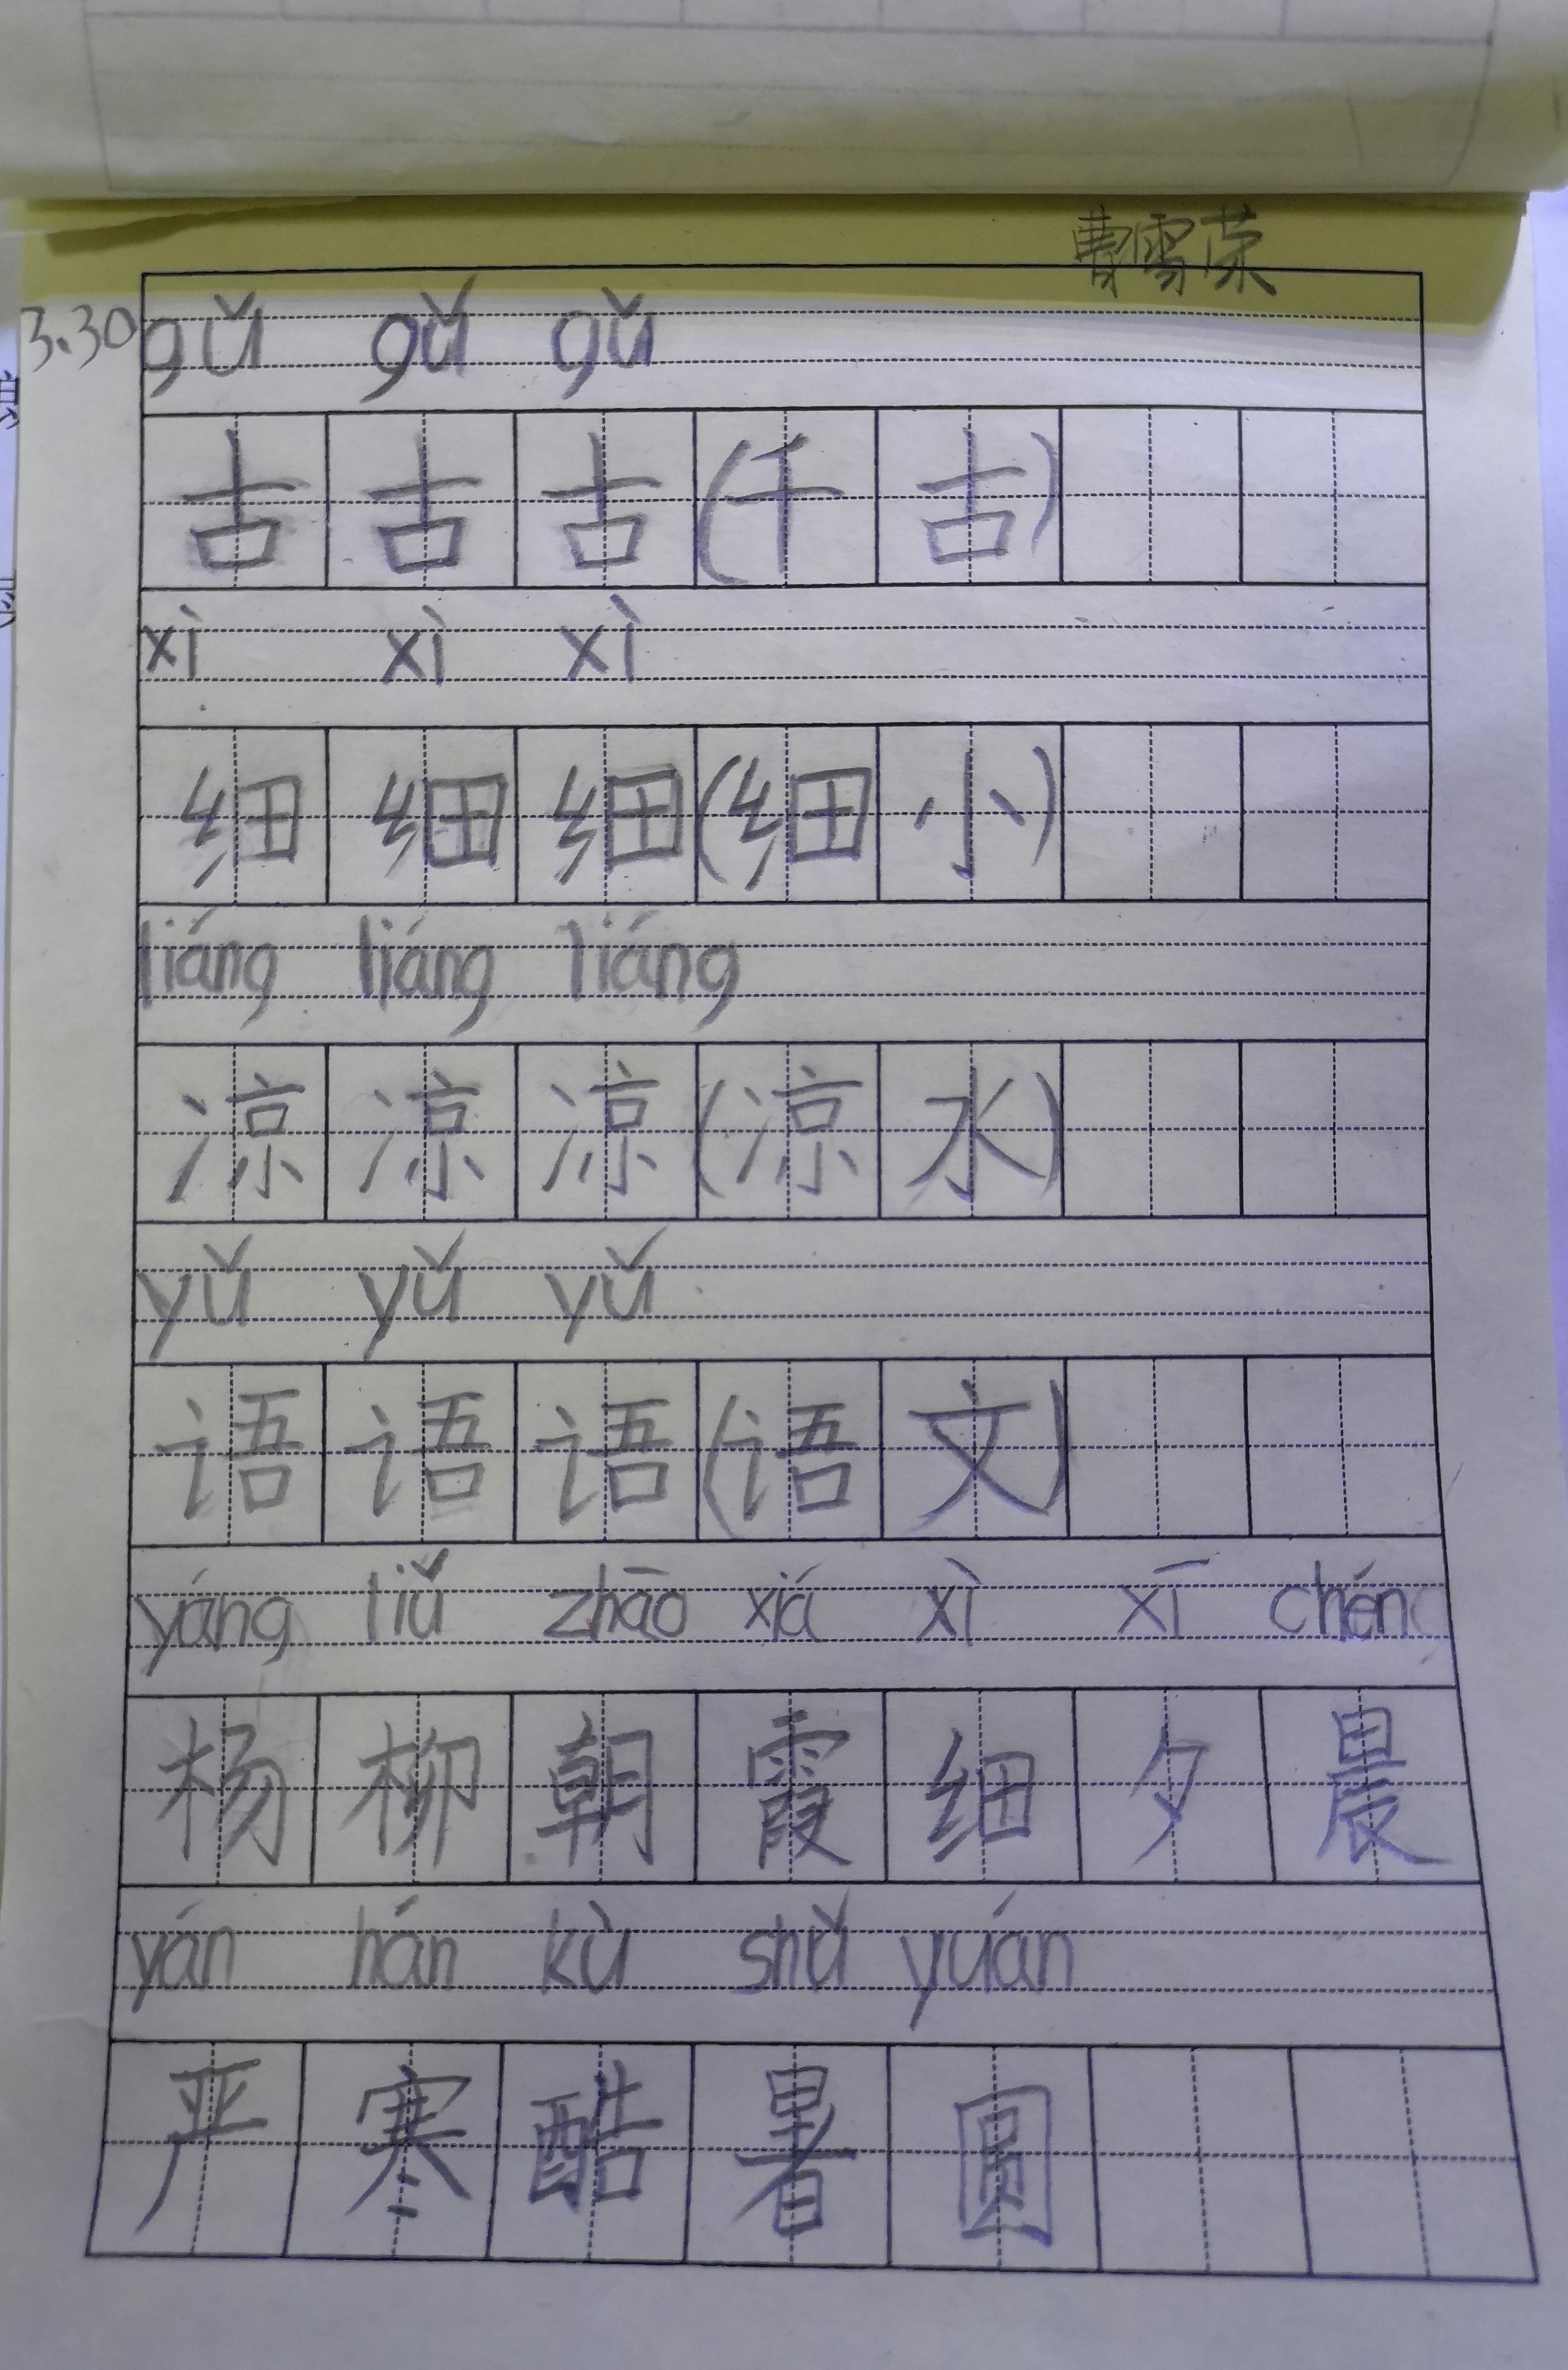 曹雪荣
3.30 gǔ gǔ gǔ
古 古 古 (千 古)
xì xì xì
细 细 细 (细 小)
liáng liáng liáng
凉 凉 凉 (凉 水)
yǔ yǔ yǔ
语 语 语 (语 文)
yáng liǔ zhāo xiá xì xī chén
杨 柳 朝 霞 细 夕 晨
yán hán kù shǔ yuán
严 寒 酷 暑 圆